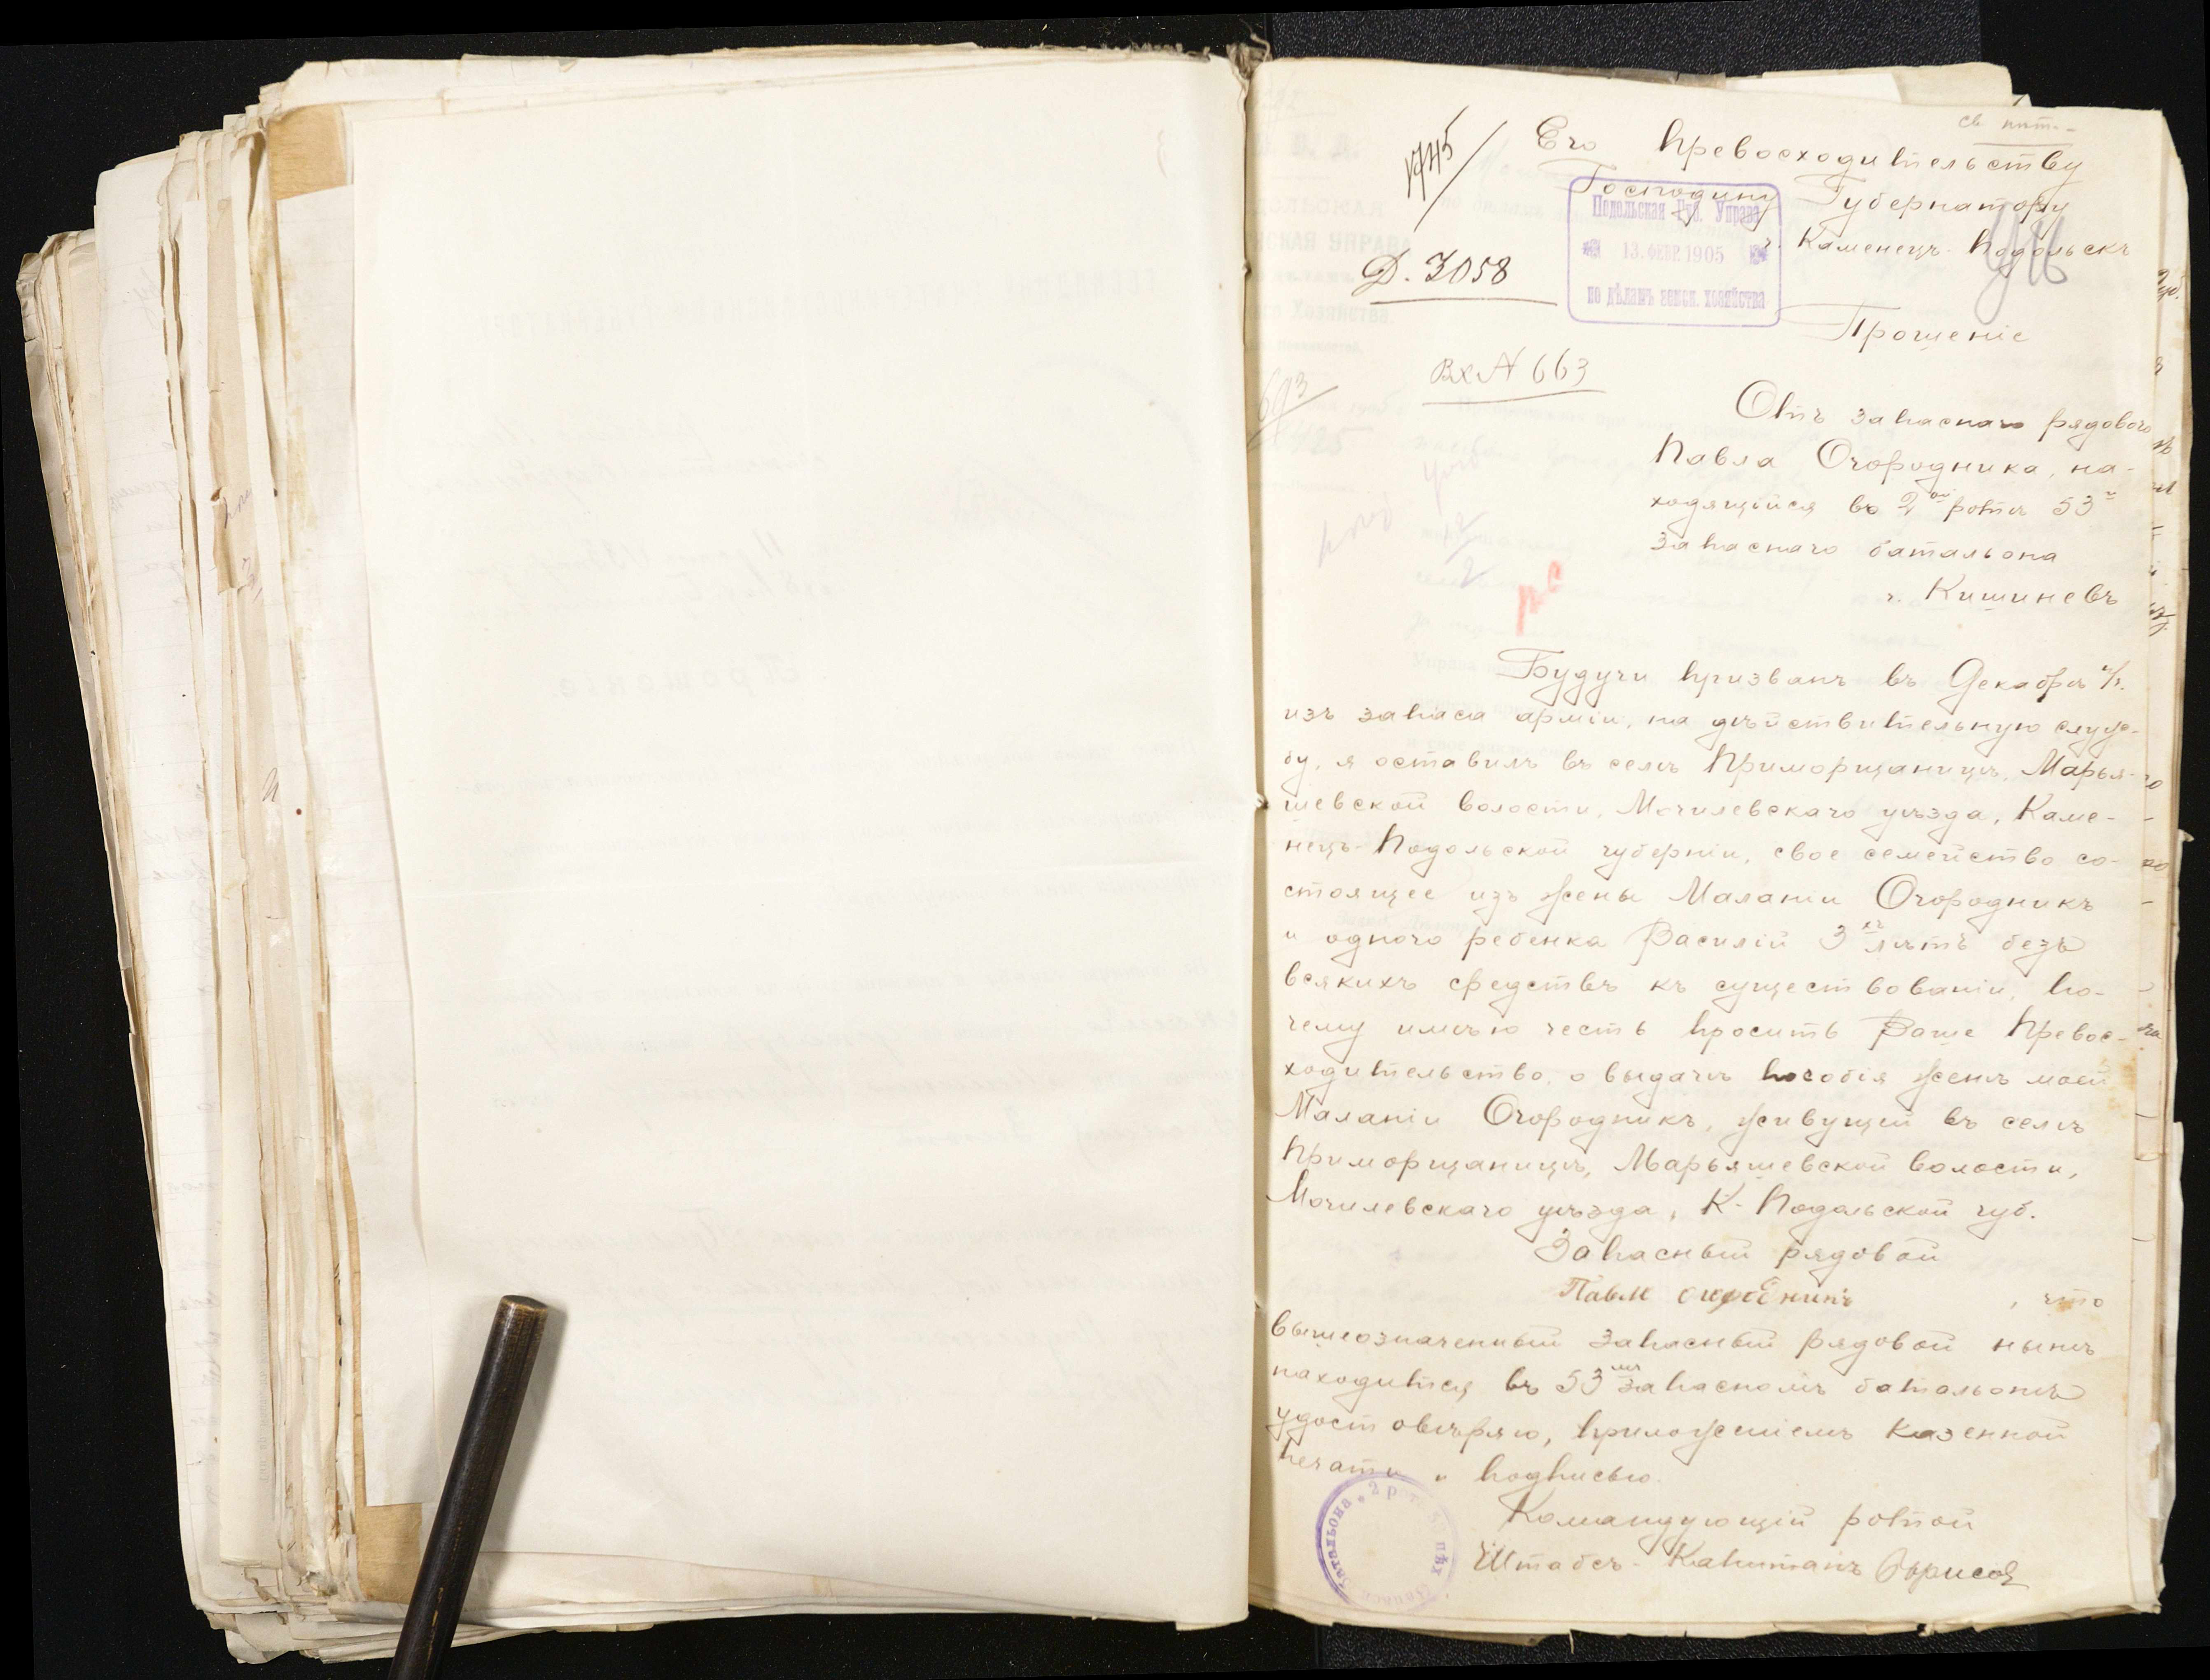 св. пит.
1745
Его Превосходительству
Господину Губернатору
г. Каменецъ-Подольскъ
Подольская Губ. Управа
13. ФЕВР. 1905
по дѣламъ земск. хозяйства
Д. 3058
Прошеніе
Вх № 663
693
Отъ запаснаго рядового
Павла Огородника, на-
ходящійся въ 2ой ротѣ 53й
запаснаго батальона
г. Кишиневъ
рс
Будучи призванъ въ Декабрѣ м/г.
изъ запаса арміи, на дѣйствительную служ-
бу, я оставилъ въ селѣ Приморщаницѣ, Марья-
шевской волости, Могилевскаго уѣзда, Каме-
нецъ-Подольской губерніи, свое семейство со-
стоящее изъ жены Маланіи Огородникъ
и одного ребенка Василій 3хъ лѣтъ безъ
всякихъ средствъ къ существованіи, по-
чему имѣю честь просить Ваше Превос-
ходительство, о выдачѣ пособія женѣ моей
Маланіи Огородникъ, живущей въ селѣ
Приморщаницѣ, Марьяшевской волости,
Могилевскаго уѣзда, К-Подольской губ.
Запасный рядовой
Павел
, что
вышеозначенный запасный рядовой нынѣ
находится въ 53мъ запасномъ батальонѣ
удостовѣряю, приложеніемъ казенной
печати и подписью.
Командующій ротой
Штабсъ-Капитанъ Борисов
2 рот батальона